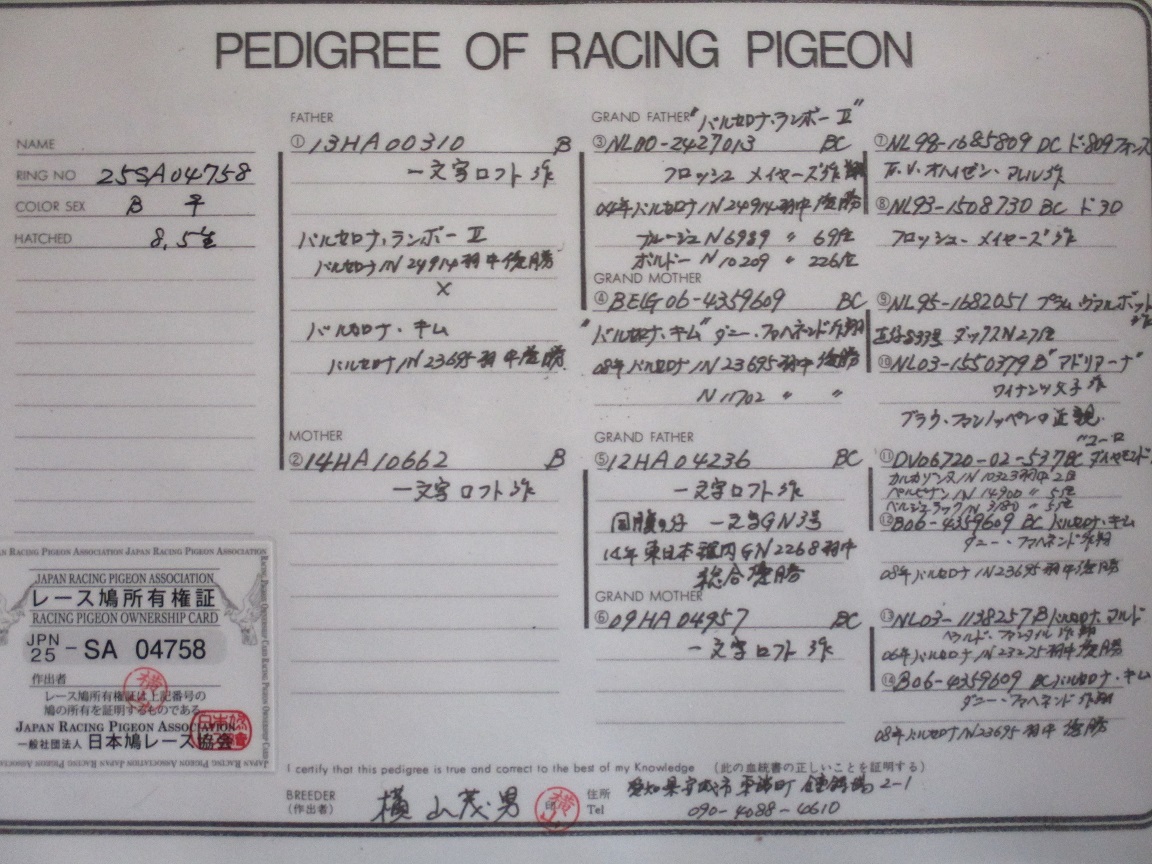 PEDIGREE OF RACING PIGEON
NAME
RING NO 25SA04758
COLOR SEX B ♀
HATCHED 8.5生
FATHER
①13HA00310 B
一文字ロフト作
バルセロナ・ランボーⅡ
バルセロナIN24914羽中優勝
×
バルセロナ・キム
バルセロナIN23695羽中優勝
MOTHER
②14HA10662 B
一文字ロフト作
GRAND FATHER "バルセロナ・ランボーⅡ"
③NL00-2427013 BC
フロッシュ メイヤーズ作翔
04年バルセロナIN24914羽中優勝
ブルージュN6989 〃 69位
ボルドーN10209 〃 226位
GRAND MOTHER
④BELG06-4359609 BC
"バルセロナ・キム" ダニー・ファヘネンド作翔
08年バルセロナIN23695羽中優勝
N11702 〃 〃
GRAND FATHER
⑤12HA04236 BC
一文字ロフト作
同腹の仔 一文字GN3号
14年東日本稚内GN2268羽中
総合優勝
GRAND MOTHER
⑥09HA04957 BC
一文字ロフト作
⑦NL98-1685809 DC ド・809フォンス
⑧NL93-1508730 BC ド30
フロッシュ・メイヤーズ作
⑨NL95-1682051 ブラム・ヴァルボット作
直仔833号 ダックスN27位
⑩NL03-1550379 B "アドリアーナ"
ワイナンツ父子作
ブラウ・ファンノッペンの近親
⑪DV06720-02-537BC "ユーロダイヤモンド"
カルカソンヌIN10323羽中2位
ペルピナンIN14900 〃 5位
ベルジュラックIN3180 〃 5位
⑫B06-4359609 BC バルセロナ・キム
ダニー・ファヘネンド作翔
08年バルセロナIN23695羽中優勝
⑬NL03-1138257 B バルセロナ・マルド
06年バルセロナIN23275羽中優勝
⑭B06-4359609 BC バルセロナ・キム
ダニー・ファヘネンド作翔
08年バルセロナIN23695羽中優勝
JAPAN RACING PIGEON ASSOCIATION
レース鳩所有権証
RACING PIGEON OWNERSHIP CARD
JPN 25 - SA 04758
作出者
レース鳩所有権証は上記番号の
鳩の所有を証明するものである
JAPAN RACING PIGEON ASSOCIATION
一般社団法人 日本鳩レース協会
I certify that this pedigree is true and correct to the best of my Knowledge (此の血統書の正しいことを証明する)
BREEDER (作出者) 横山茂男 印
住所 愛知県安城市東端町
Tel 090-4088-4610